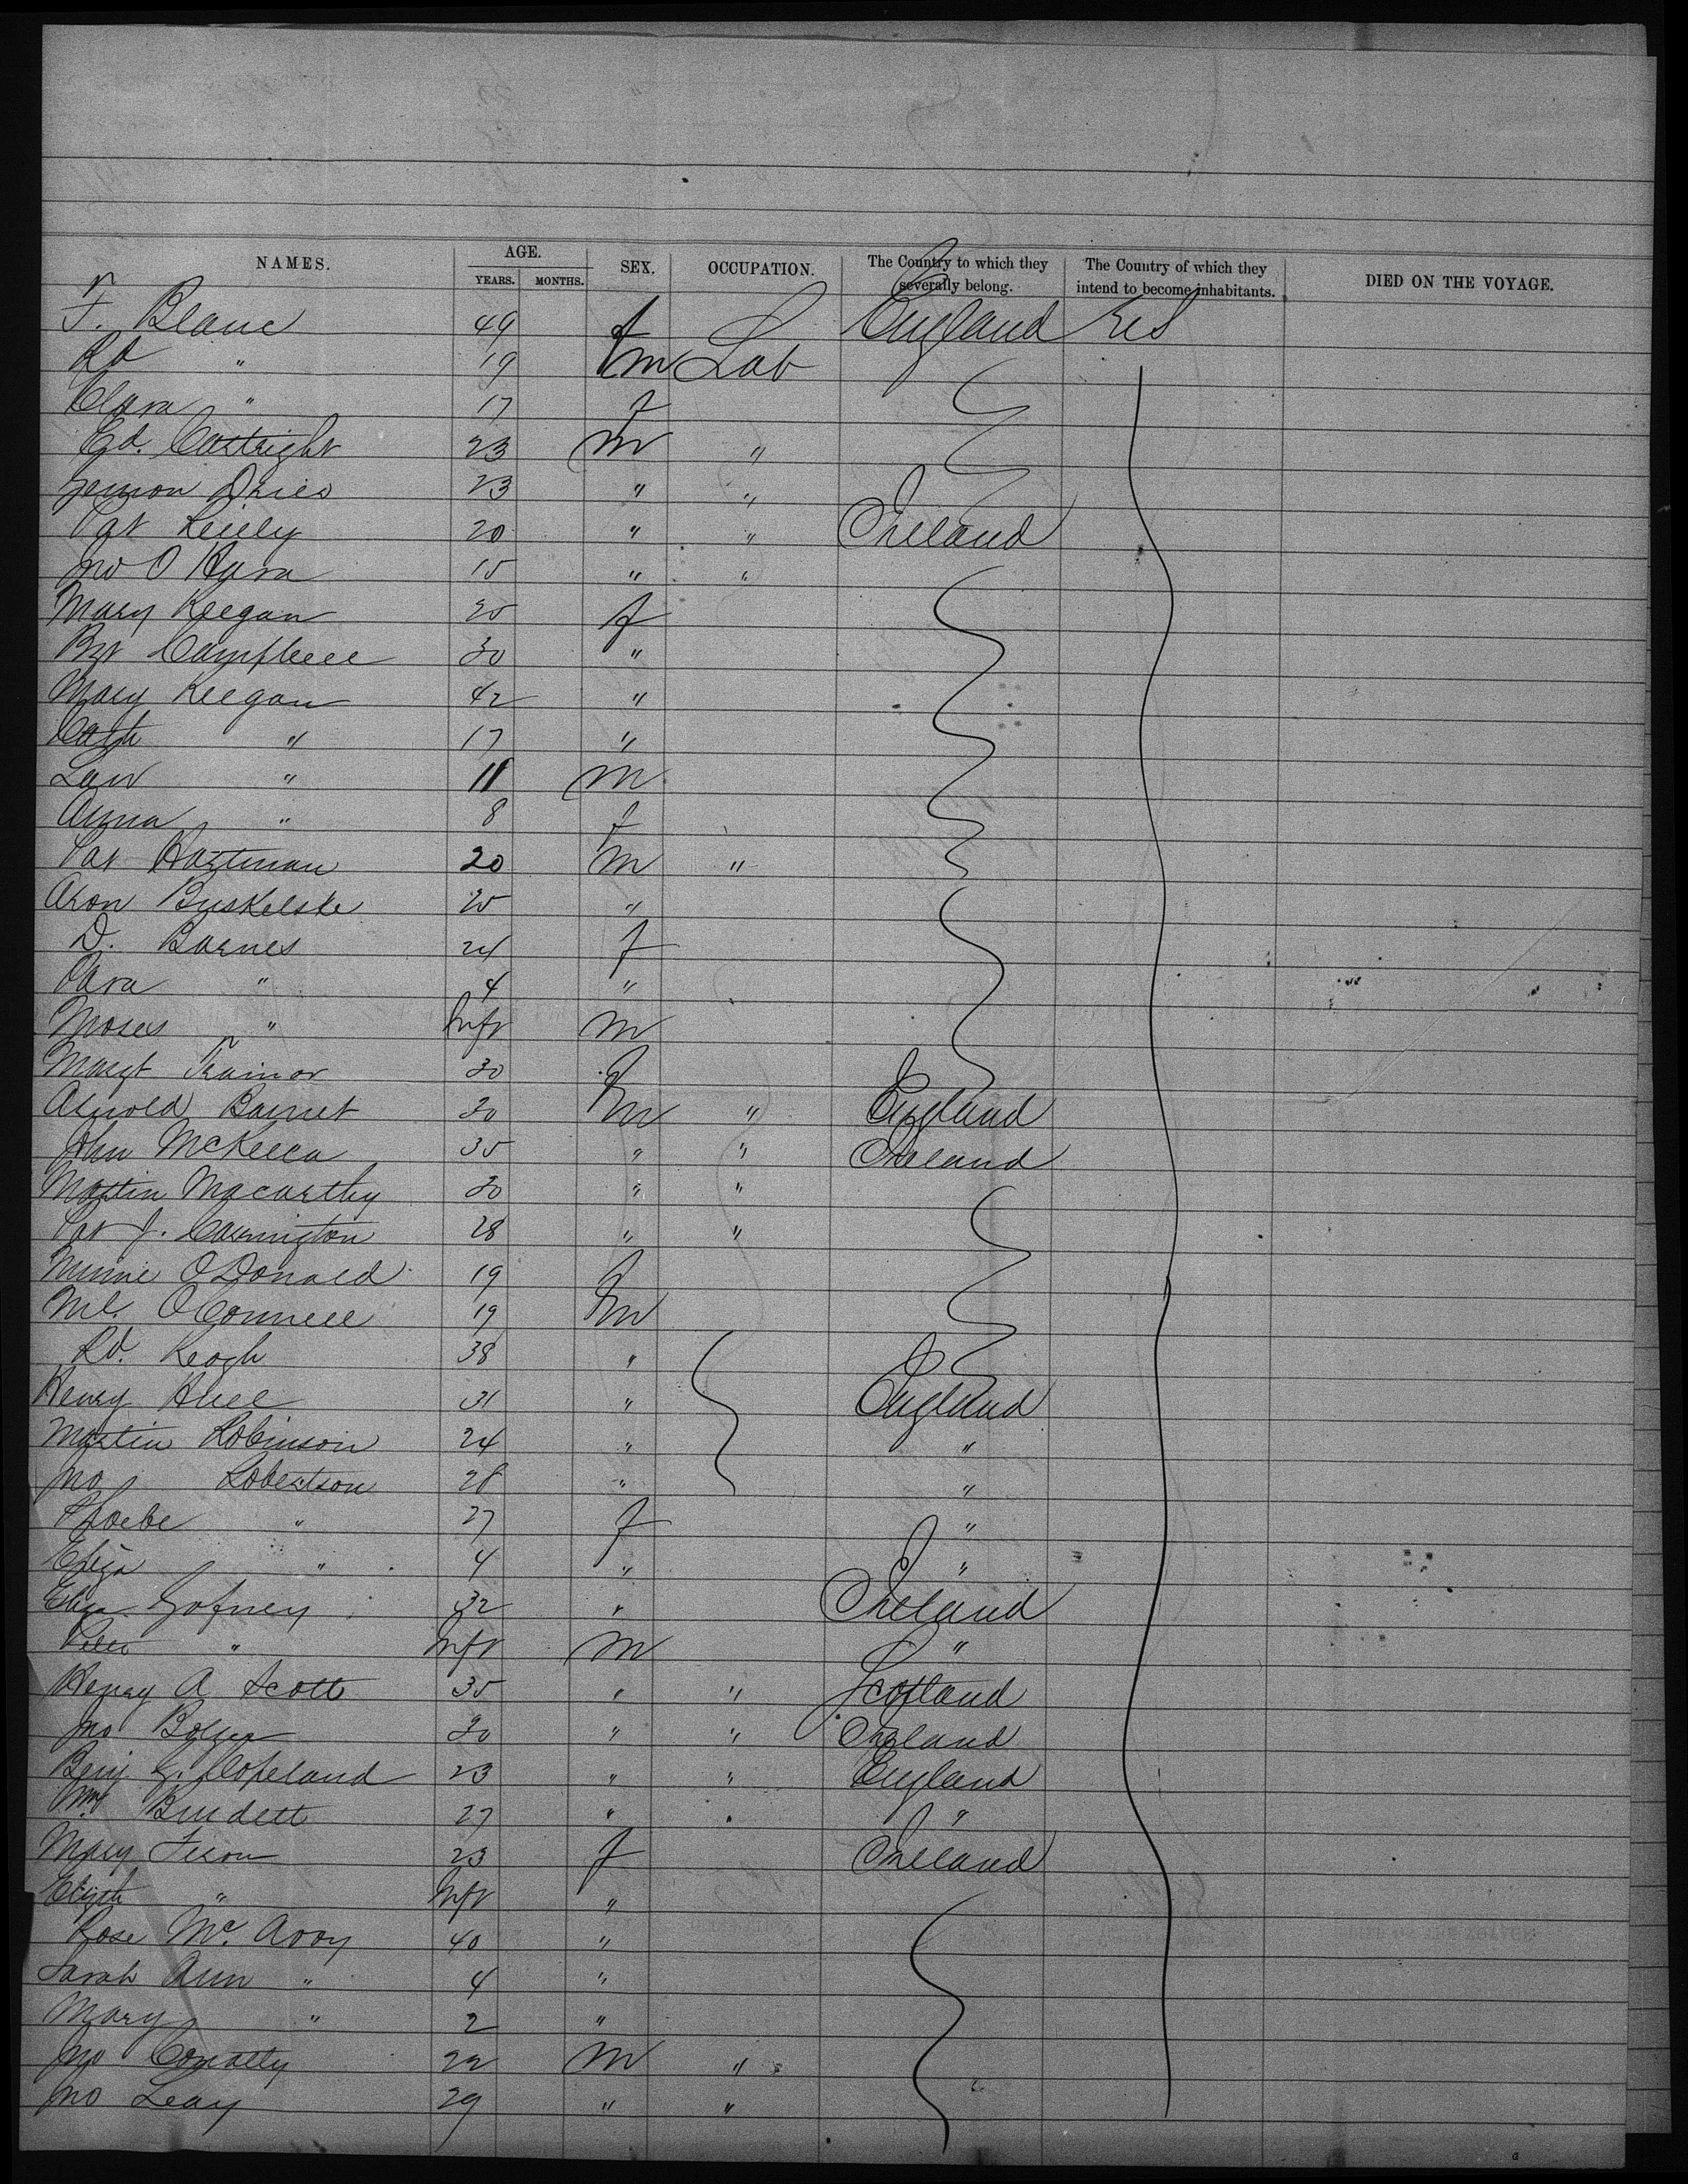 NAMES. AGE. YEARS. MONTHS. SEX. OCCUPATION. The Country to which they severally belong. The Country of which they intend to become inhabitants. DIED ON THE VOYAGE.
F. Blanc 49 f England U.S
Rd " 19 m Lab
Clara " 17 f
Ed. Cartright 23 m "
23 " "
Pat Reiley 20 " " Ireland
Jno O Hara 15 " "
Mary Keegan 20 f
Bgt Campbell 30 "
Mary Keegan 42 "
Cath " 17 "
Law " 11 m
Anna " 8 f
Pat Hartman 20 m "
Aron Buskelske 20 "
D. Barnes 24 f
Sara " 4 "
Moses " Inft m
Margt Trainor 30 f
Arnold Barnet 30 m " England
John McKeeca 35 " " Ireland
Martin Macarthy 30 " "
Pat J. Carrington 28 " "
Minnie ODonald 19 f
Ml. OConnell 19 m
Rd. Keogh 38 "
Henry Hill 31 " England
Martin Robinson 24 " "
Jno Robertson 28 " "
Phoebe " 27 f "
Eliza " 4 " "
Eliza Gofney 32 " Ireland
Peter " Inft m "
Henry A Scott 35 " " Scotland
Jno Bolger 30 " " Ireland
Benj G. Copeland 23 " " England
Wm Burdett 27 " " "
Mary 23 f Ireland
Elizth " Inft "
Rose Mc. Avoy 40 "
Sarah Ann " 4 "
Mary " 2 "
Jno Conolly 22 m "
Jno Leay 29 " "